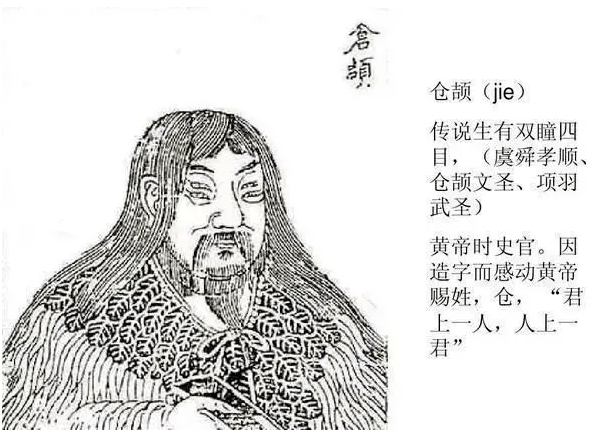 倉頡
仓颉（jie）
传说生有双瞳四
目，（虞舜孝顺、
仓颉文圣、项羽
武圣）
黄帝时史官。因
造字而感动黄帝
赐姓，仓，“君
上一人，人上一
君”